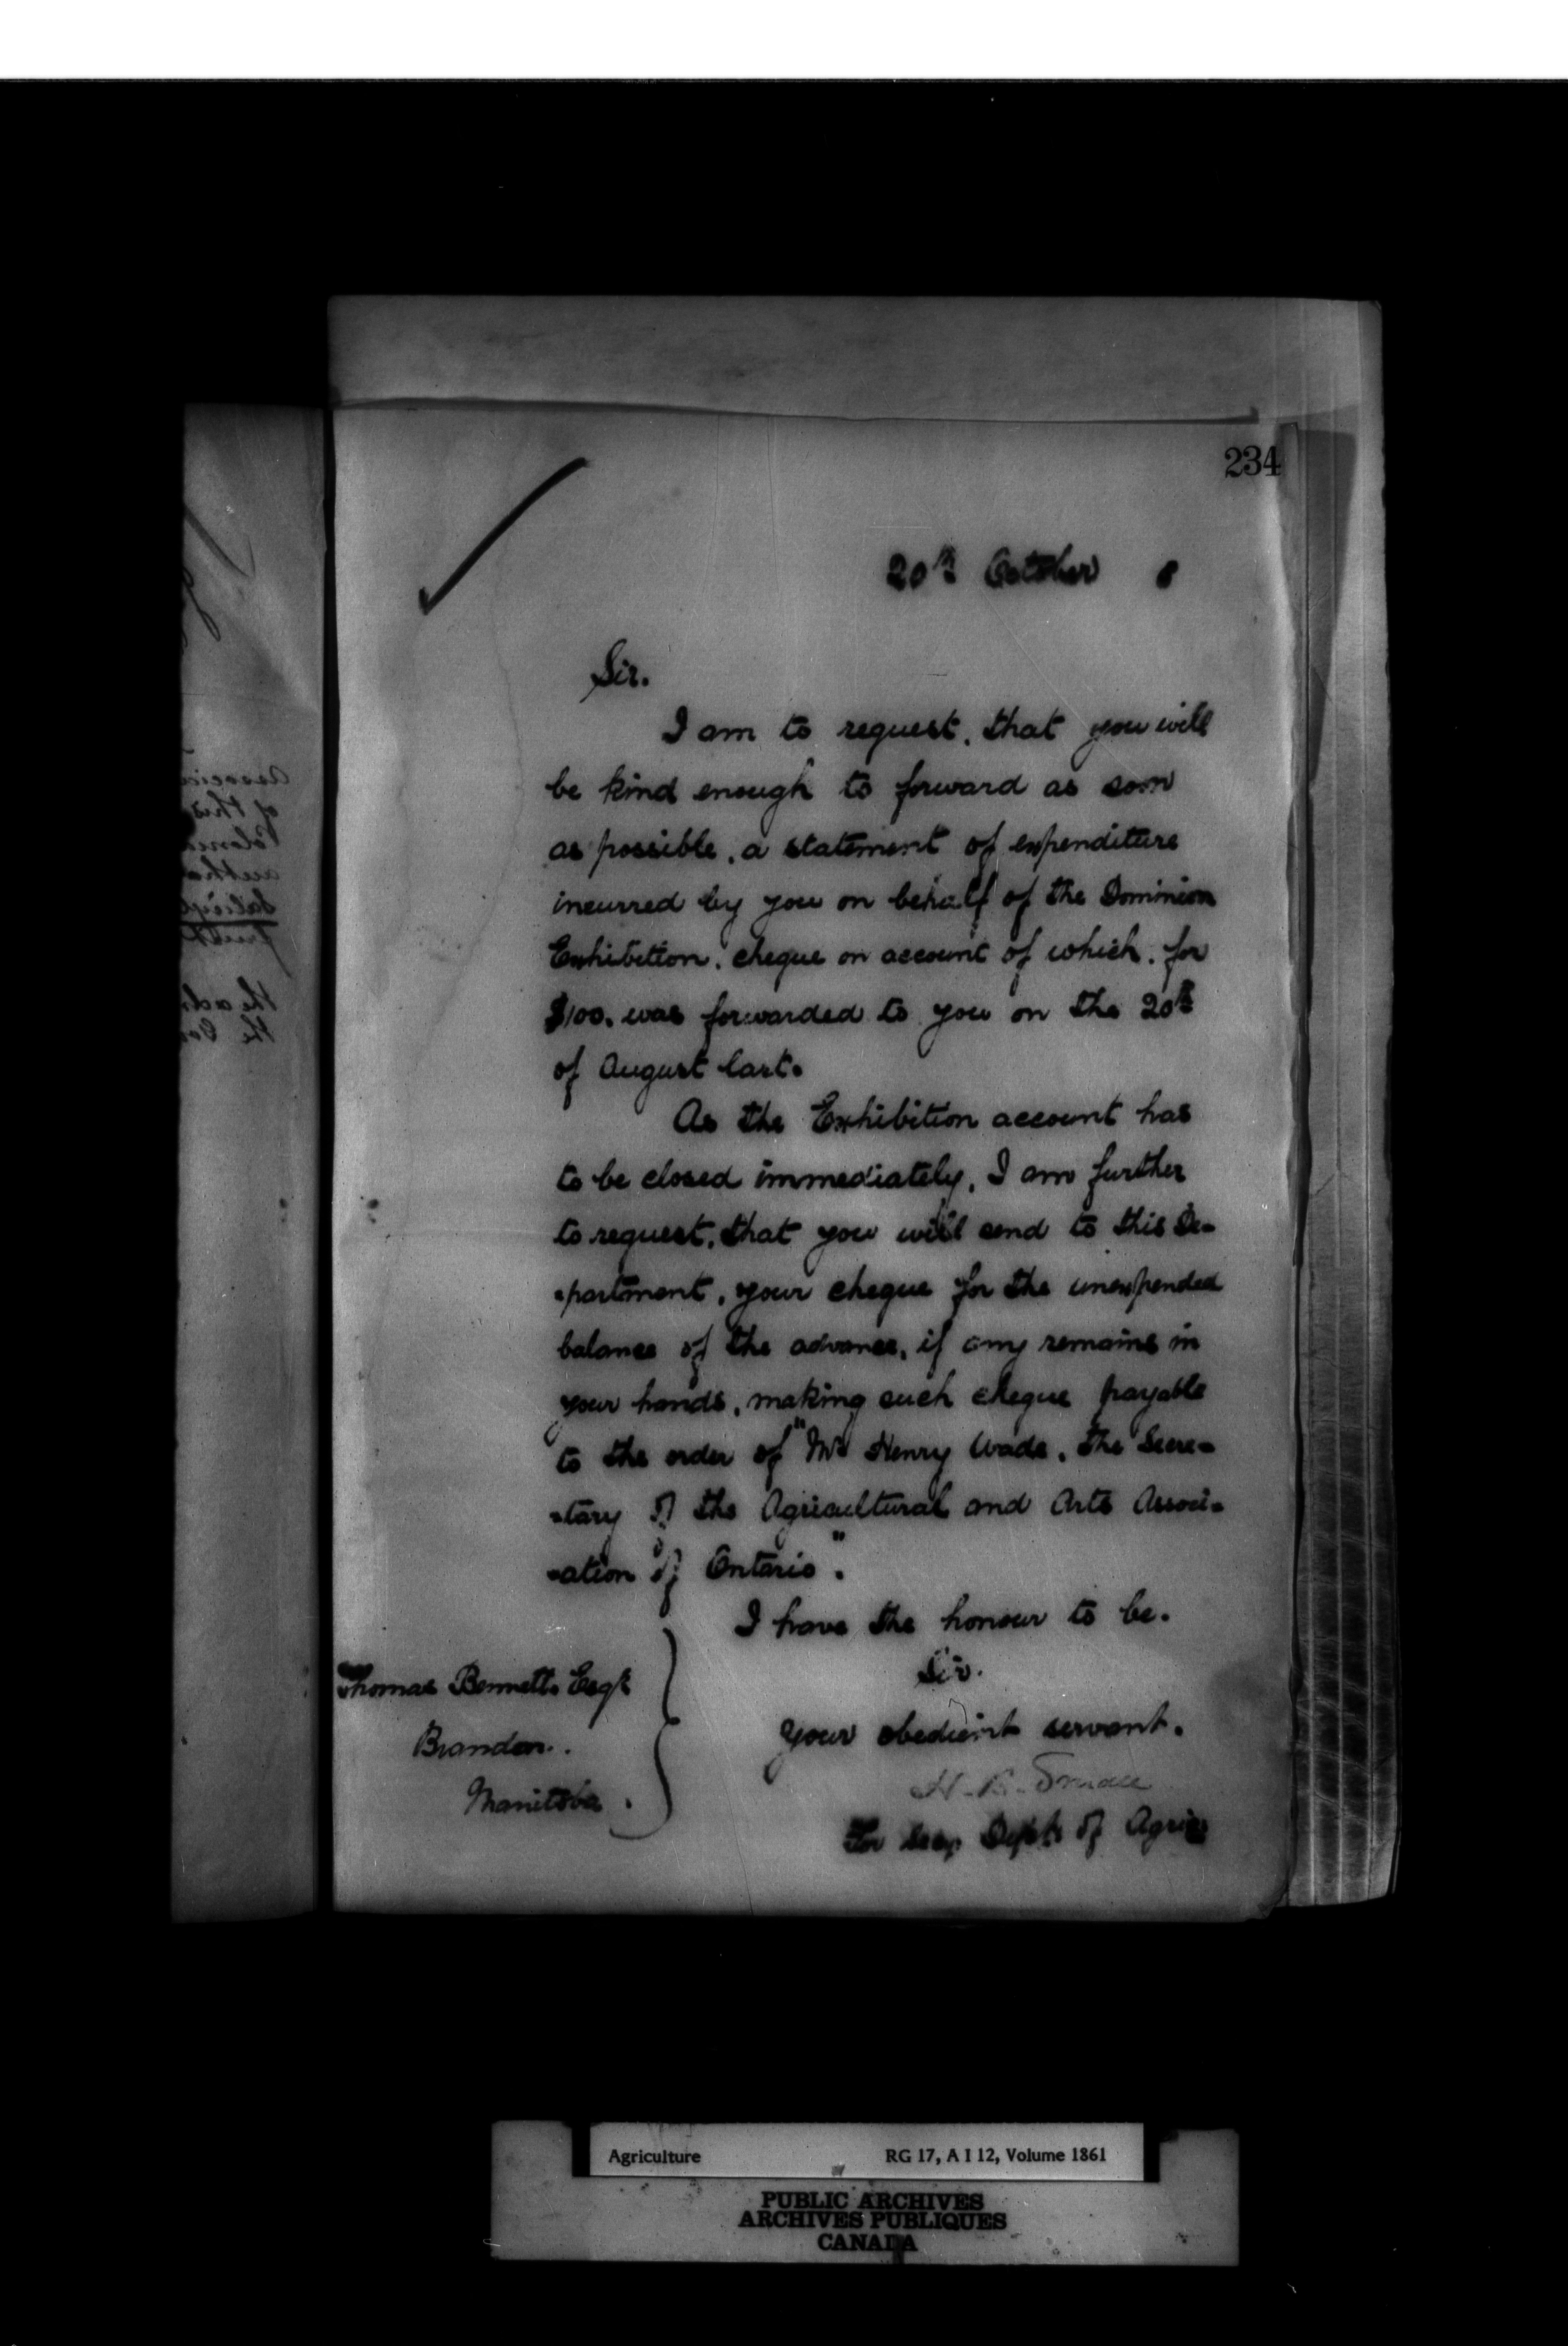 234
20th October 8
Sir.
I am to request, that you will
be kind enough to forward as soon
as possible, a statement of expenditure
incurred by you on behalf of the Dominion
Exhibition, cheque on account of which, for
$100. was forwarded to you on the 20th
of August last.
As the Exhibition account has
to be closed immediately, I am further
to request, that you will send to this De-
-partment, your cheque for the unexpended
balance of the advance, if any remains in
your hands, making such cheque payable
to the order of "Mr Henry Wade, the Secre-
-tary of the Agricultural and Arts Associ-
-ation of Ontario".
I have the honour to be.
Sir.
Your obedient servant.
H. B. Small
For Secy Dept. of Agric
Thomas Bennett. Esqr
Brandon.
Manitoba.
Agriculture RG 17, A I 12, Volume 1861
PUBLIC ARCHIVES
ARCHIVES PUBLIQUES
CANADA